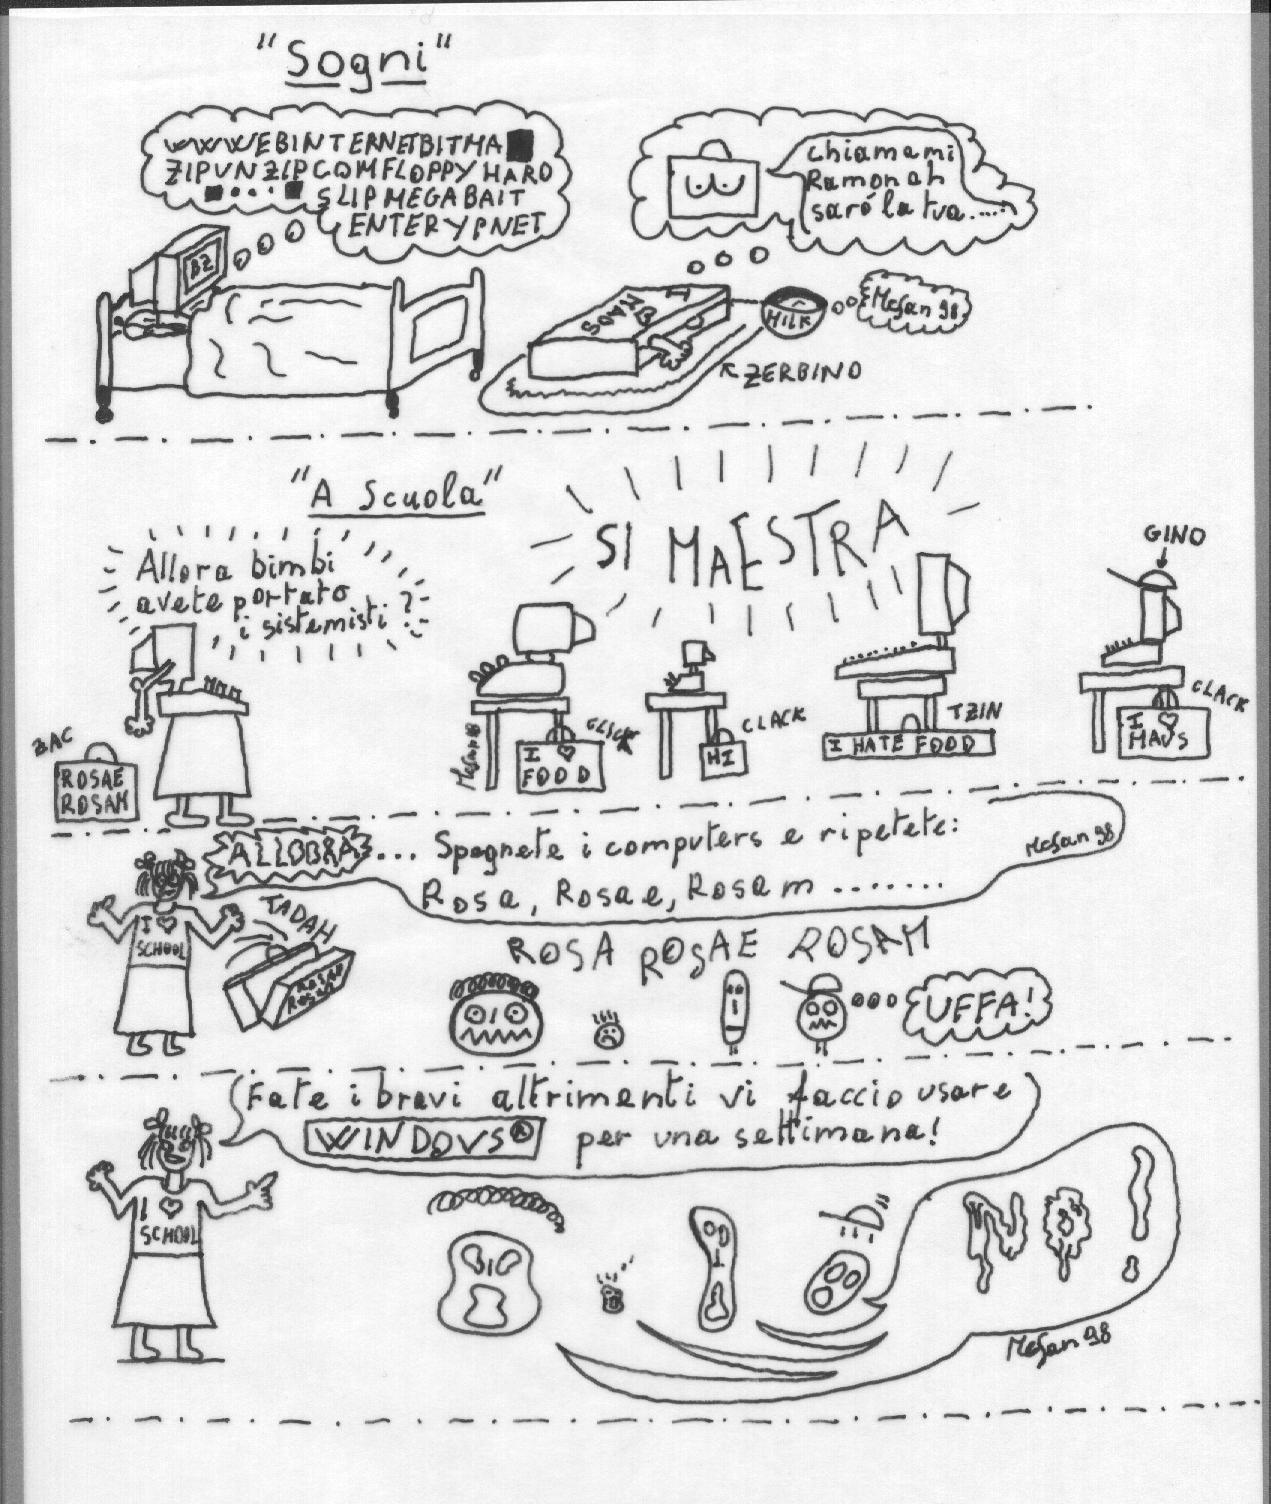 "Sogni"
WWWEBINTERNETBITMA
ZIPUNZIPCOMFLOPPYHARD
SLIPMEGABAIT
ENTERYPNET
chiamami
Ramonah
sarò la tua.....
BZ
MILK
McSan 98
ZERBINO
"A Scuola"
SI MAESTRA
GINO
Allora bimbi
avete portato
i sistemisti?
ZAC
ROSAE
ROSAM
McSan 98
CLICK
I ♡
FOOD
CLACK
HI
TZIN
I HATE FOOD
CLACK
I ♡
MAUS
ALLOBRA... Spegnete i computers e ripetete:
McSan 98
Rosa, Rosae, Rosam .......
TADAH
I ♡
SCHOOL
ROSAE
ROSAM
ROSA ROSAE ROSAM
UFFA!
Fate i bravi altrimenti vi faccio usare
WINDOVS® per una settimana!
I ♡
SCHOOL
NO!
McSan 98